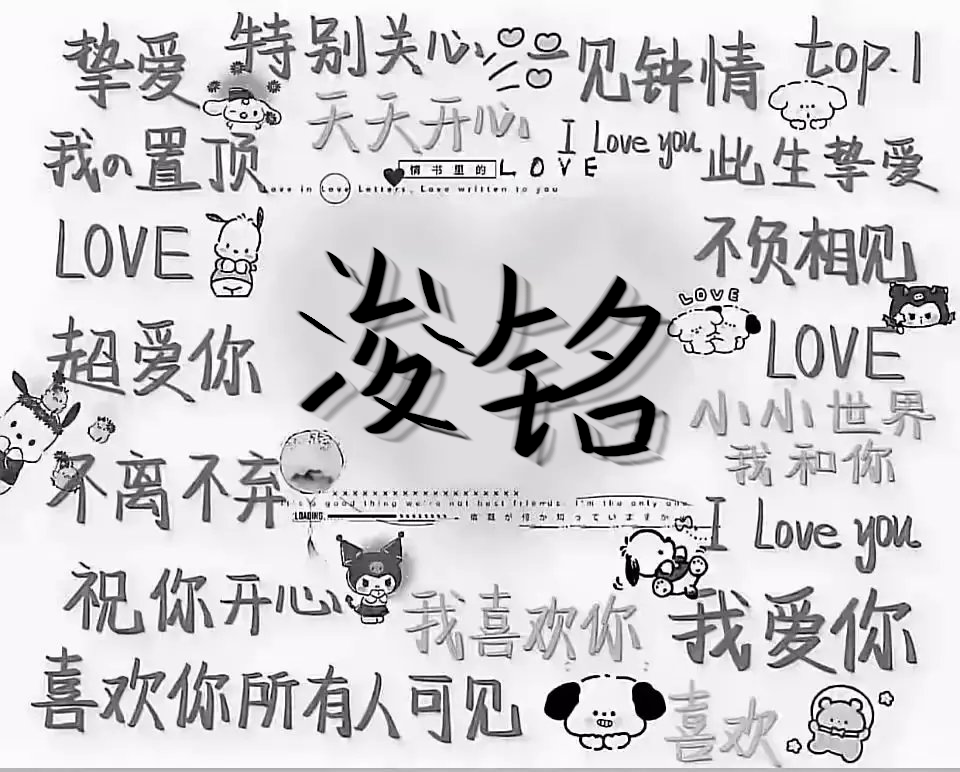 挚爱
特别关心
一见钟情
top.1
天天开心
I Love you
我の置顶
情书里的 LOVE
Love in Love Letters, Love written to you
此生挚爱
LOVE
不负相见
浚铭
LOVE
超爱你
LOVE
小小世界
我和你
不离不弃
It's a good thing we're not best friends. I'm the only one
LOADING
I Love you
祝你开心
我喜欢你
我爱你
喜欢你所有人可见
喜欢